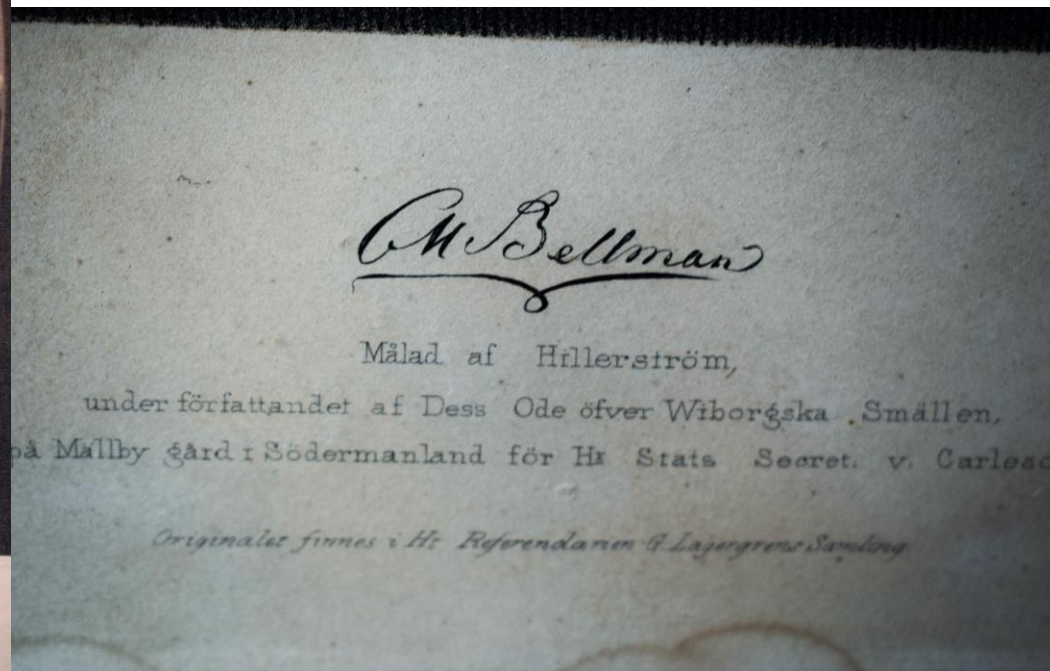 CM Bellman
Målad af Hillerström,
under författandet af Dess Ode öfver Wiborgska Smällen,
på Mällby gård i Södermanland för Hr Stats Secret. v. Carleso
Originalet finnes i Hr Referendarien G. Lagergrens Samling